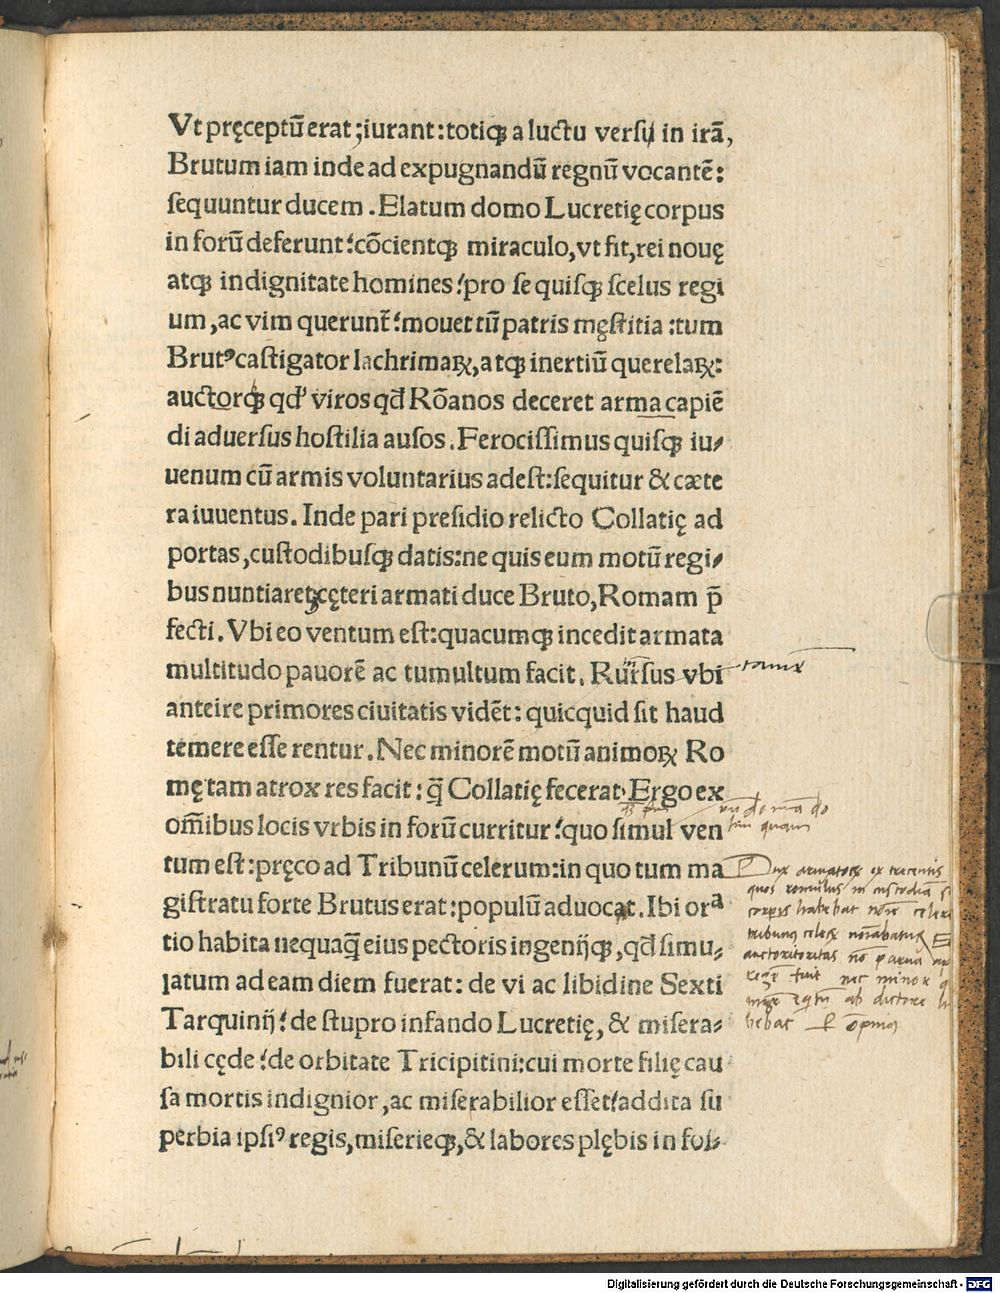 Vt pręceptū erat ; iurant : totiqꝫ a luctu versi in irā,
Brutum iam inde ad expugnandū regnū vocantē :
sequuntur ducem . Elatum domo Lucretię corpus
in forū deferunt : cōcientqꝫ miraculo, vt fit, rei nouę
atqꝫ indignitate homines : pro se quisqꝫ scelus regi
um , ac vim querunt̄ : mouet tū patris męstitia : tum
Brutꝰ castigator lachrimaꝝ, atqꝫ inertiū querelaꝝ :
auctorqꝫ qd' viros qđ Rōanos deceret arma capiē
di aduersus hostilia ausos . Ferocissimus quisqꝫ iu⸗
uenum cū armis voluntarius adest : sequitur & cæte
ra iuuentus . Inde pari presidio relicto Collatię ad
portas , custodibusqꝫ datis : ne quis eum motū regi⸗
bus nuntiaret, cęteri armati duce Bruto, Romam p̄
fecti . Vbi eo ventum est : quacumqꝫ incedit armata
multitudo pauorē ac tumultum facit . Rursus vbi
anteire primores ciuitatis vidēt : quicquid sit haud
temere esse rentur . Nec minorē motū animoꝝ Ro
mę tam atrox res facit : q̄ Collatię fecerat. Ergo ex
om̄ibus locis vrbis in forū curritur : quo simul ven
tum est : pręco ad Tribunū celerum : in quo tum ma
gistratu forte Brutus erat : populū aduocat . Ibi orᵃ
tio habita nequaq̄ eius pectoris ingenijqꝫ, qđ simu⸗
latum ad eam diem fuerat : de vi ac libidine Sexti
Tarquinij : de stupro infando Lucretię, & misera⸗
bili cęde : de orbitate Tricipitini : cui morte filię cau
sa mortis indignior , ac miserabilior esset : addita su
perbia ipsiꝰ regis, miserieqꝫ, & labores plębis in fos⸗
quam
Dux armatoꝝ ex trecentis
quos romulus in custodiā
corporis habebat
tribunus celeꝝ
nō parua
fuit nec minor
ab dictore
hebat
Digitalisierung gefördert durch die Deutsche Forschungsgemeinschaft - DFG